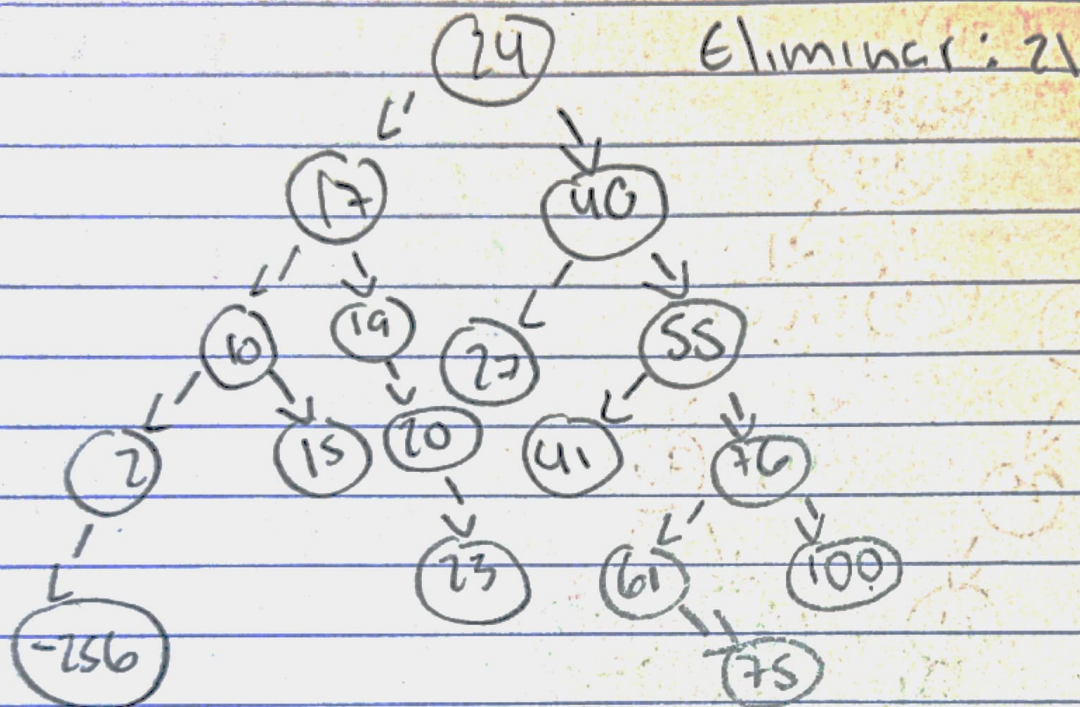 24 Eliminar: 21
17 40
10 19 27 55
2 15 20 41 76
23 61 100
-256 75